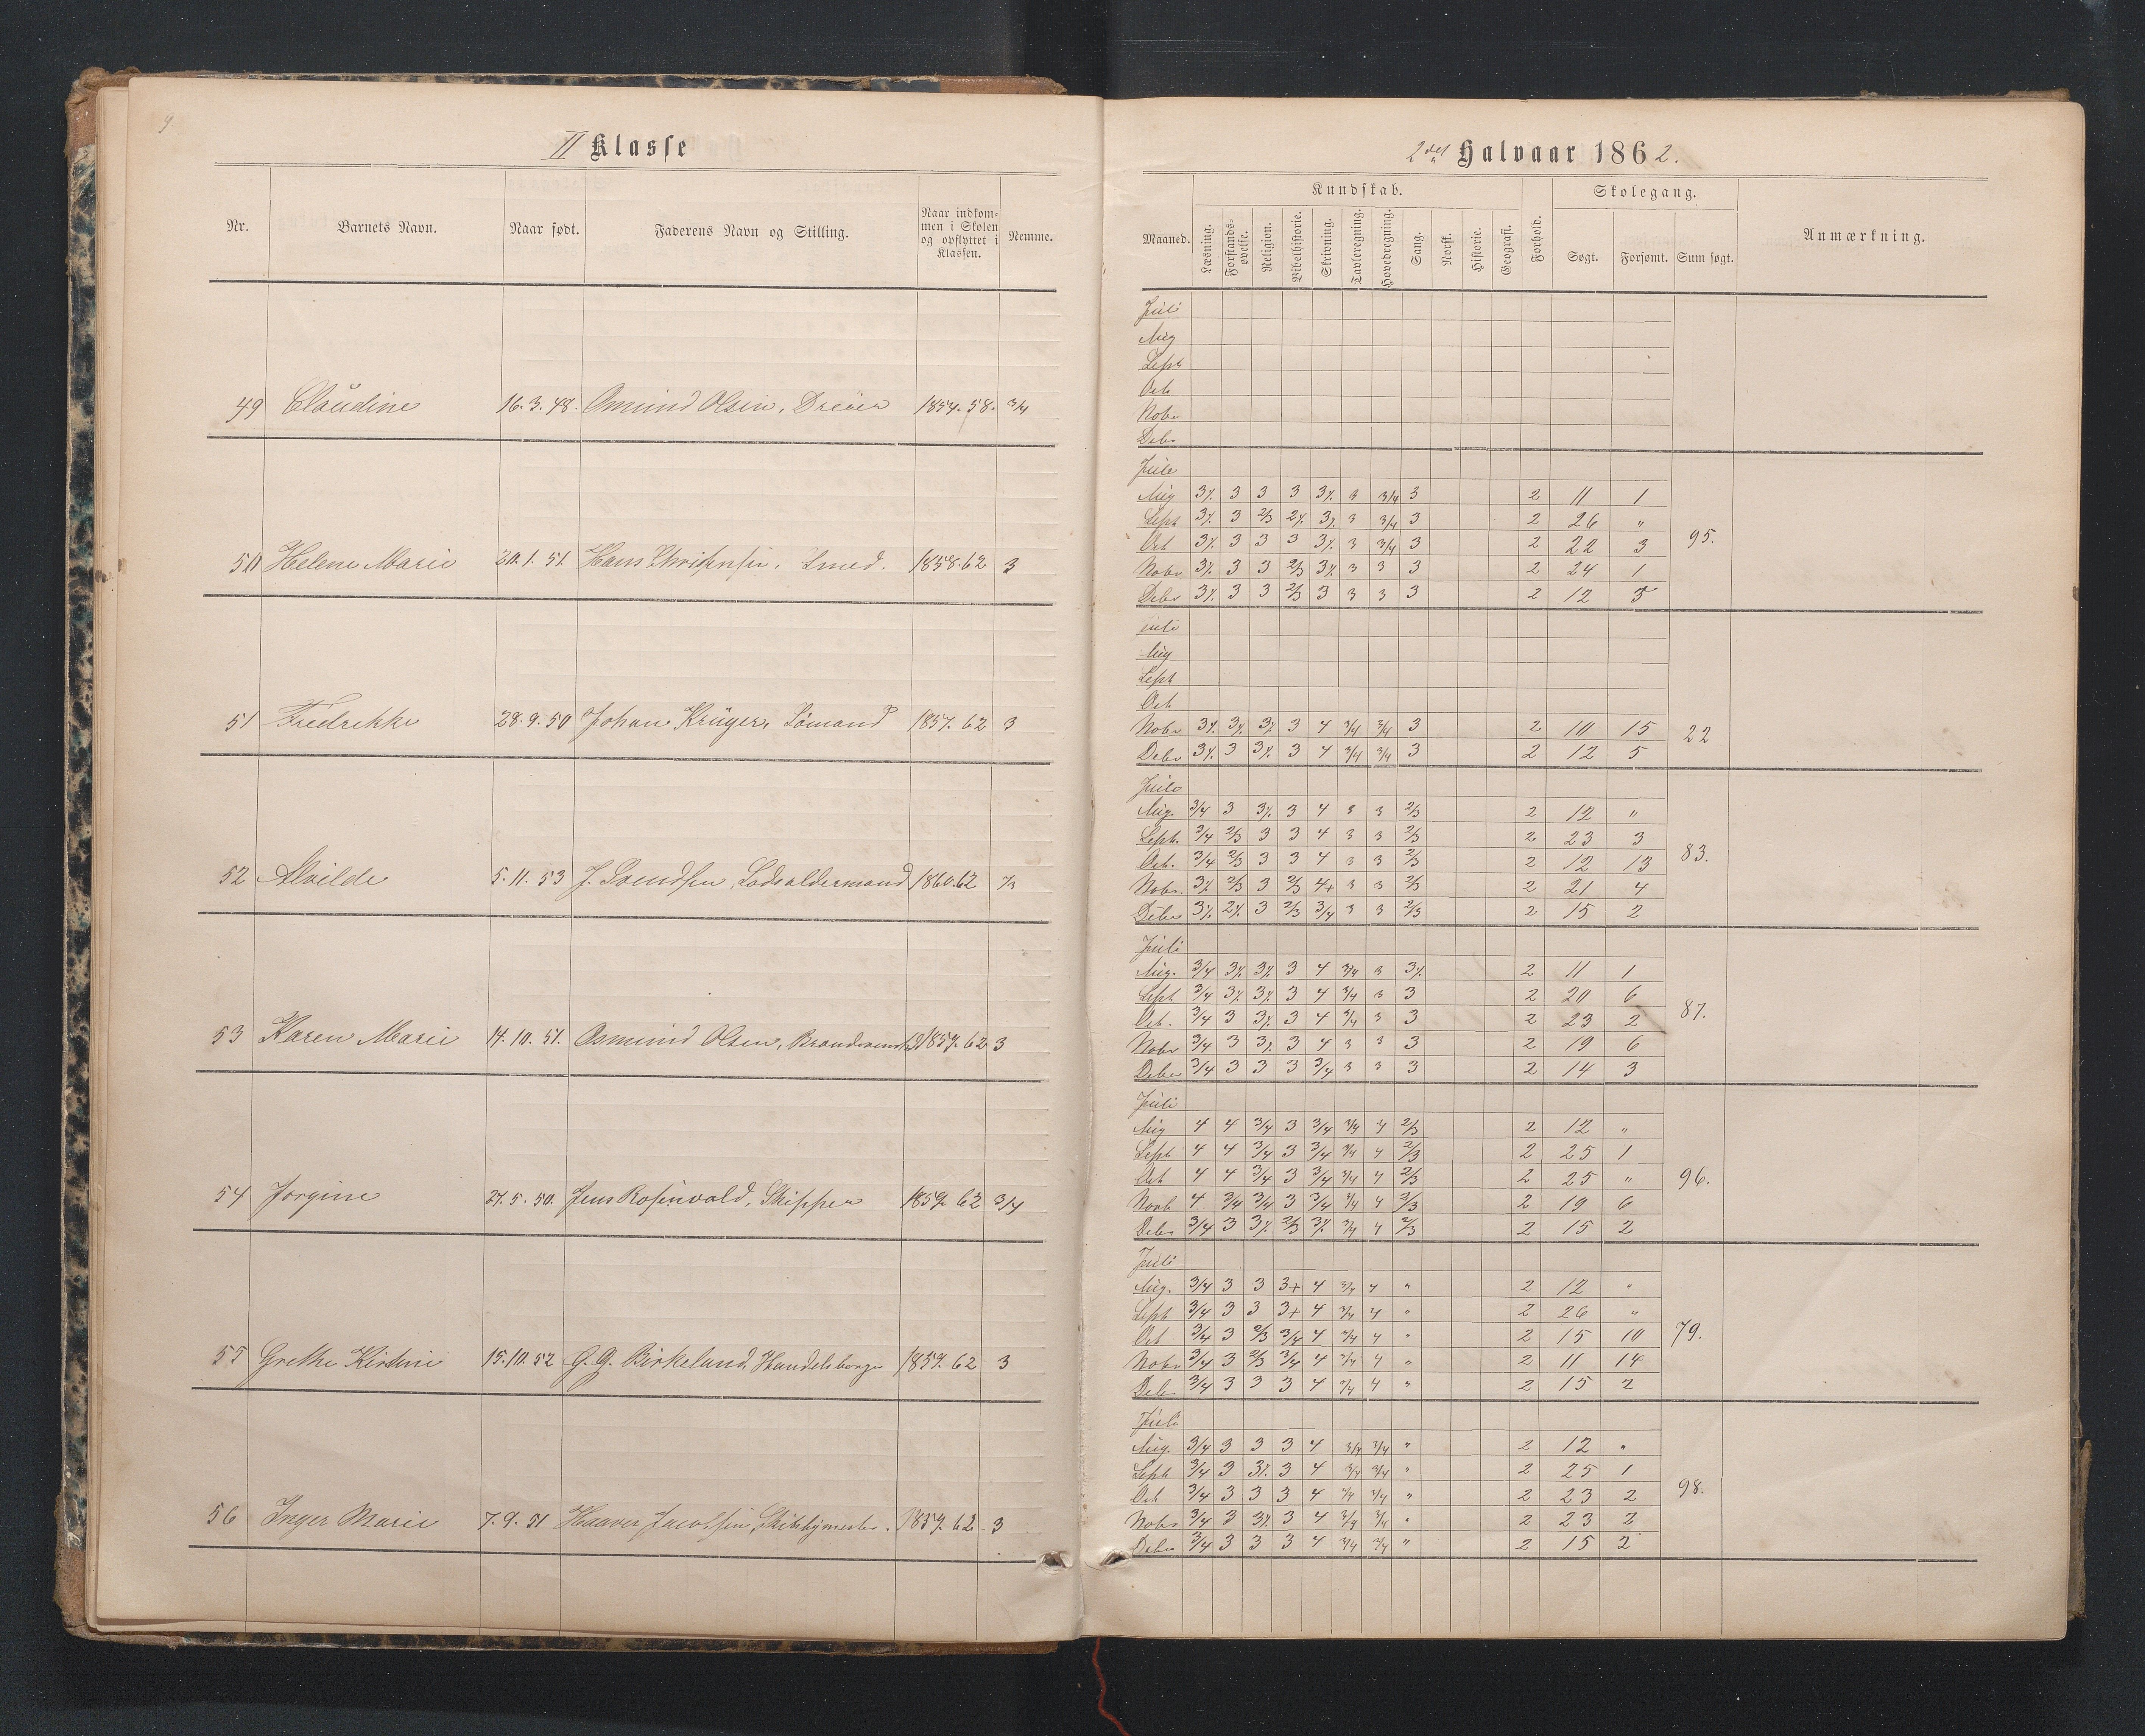 9
II Klasse
Nr. Barnets Navn. Naar født. Faderens Navn og Stilling. Naar indkommen i Skolen og opflyttet i Klassen. Nemme.
49 Claudine 16.3.48. Osmund Olsen, Dreier 1854.58. 3/4
50 Helene Marie 20.1.51. Hans Christensen, Smed. 1858.62 3
51 Fredrikke 28.9.50 Johan Krüger, Sömand 1857.62 3
52 Alvilde 5.11.53 J. Svendsen, Lodsoldermand 1860.62
53 Karen Marie 14.10.51. Osmund Olsen, 1857.62 3
54 Jorgine 27.5.50. Jens Rosenvold, Skipper 1859.62 3/4
55 Grethe Kirstine 15.10.52 G.G. Birkeland, Handelsborger 1859.62 3
56 Inger Marie 7.9.51 Haaver Jacobsen, 1859.62. 3
2det Halvaar 1862.
Kundskab. Skolegang.
Maaned. Læsning. Forstands-øvelse. Religion. Bibelhistorie. Skrivning. Tavleregning. Hovedregning. Sang. Norsk. Historie. Geografi. Forhold. Søgt. Forsømt. Sum søgt. Anmærkning.
Juli
Aug
Sept
Oct
Nobr
Debr
Juli
Aug 3⁒ 3 3 3 3⁒ 3 3/4 3 2 11 1
Sept 3⁒ 3 2/3 2⁒ 3⁒ 3 3/4 3 2 26 "
Oct 3⁒ 3 3 3 3⁒ 3 3/4 3 2 22 3 95.
Nobr 3⁒ 3 3 2/3 3⁒ 3 3 3 2 24 1
Debr 3⁒ 3 3 2/3 3 3 3 3 2 12 5
Juli
Aug
Sept
Oct
Nobr 3⁒ 3⁒ 3⁒ 3 4 3/4 3/4 3 2 10 15 22
Debr 3⁒ 3 3⁒ 3 4 3/4 3/4 3 2 12 5
Juli
Aug. 3/4 3 3⁒ 3 4 3 3 2/3 2 12 "
Sept. 3/4 2/3 3 3 4 3 3 2/3 2 23 3
Oct. 3/4 2/3 3 3 4 3 3 2/3 2 12 13 83.
Nobr. 3⁒ 2/3 3 2/3 4+ 3 3 2/3 2 21 4
Debr 3⁒ 2⁒ 3 2/3 3/4 3 3 2/3 2 15 2
Juli
Aug. 3/4 3⁒ 3⁒ 3 4 3/4 3 3⁒ 2 11 1
Sept 3/4 3⁒ 3⁒ 3 4 3/4 3 3 2 20 6
Oct. 3/4 3 3⁒ 3 4 3/4 3 3 2 23 2 87.
Nobr 3/4 3 3⁒ 3 4 3 3 3 2 19 6
Debr 3/4 3 3 3 3/4 3 3 3 2 14 3
Juli
Aug 4 4 3/4 3 3/4 3/4 4 2/3 2 12 "
Sept 4 4 3/4 3 3/4 3/4 4 2/3 2 25 1
Oct 4 4 3/4 3 3/4 3/4 4 2/3 2 25 " 96.
Novb 4 3/4 3/4 3 3/4 3/4 4 2/3 2 19 6
Debr 3/4 3 3⁒ 2/3 3⁒ 3/4 4 2/3 2 15 2
Juli
Aug. 3/4 3 3 3+ 4 3/4 4 " 2 12 "
Sept 3/4 3 3 3+ 4 3/4 4 " 2 26 "
Oct 3/4 3 2/3 3/4 4 3/4 4 " 2 15 10 79.
Nobr 3/4 3 2/3 3/4 4 3/4 4 " 2 11 14
Debr 3/4 3 3 3 4 3/4 4 " 2 15 2
Juli
Aug. 3/4 3 3 3 4 3/4 3/4 " 2 12 "
Sept 3/4 3 3⁒ 3 4 3/4 3/4 " 2 25 1
Oct 3/4 3 3 3 4 3/4 3/4 " 2 23 2 98.
Nobr 3/4 3 3⁒ 3 4 3/4 3/4 " 2 23 2
Debr 3/4 3 3 3 4 3/4 3/4 " 2 15 2